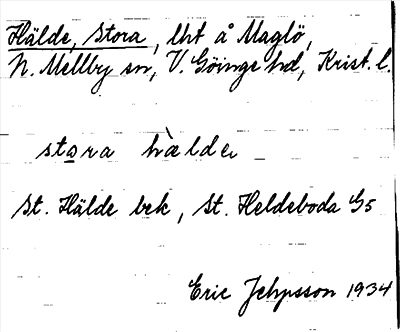 Hälde, Stora, lht å Maglö,
N. Mellby sn, V. Göinge hd, Krist. l.
stora hälde
St. Hälde bek, St. Heldeboda G5
Eric Jehpsson 1934